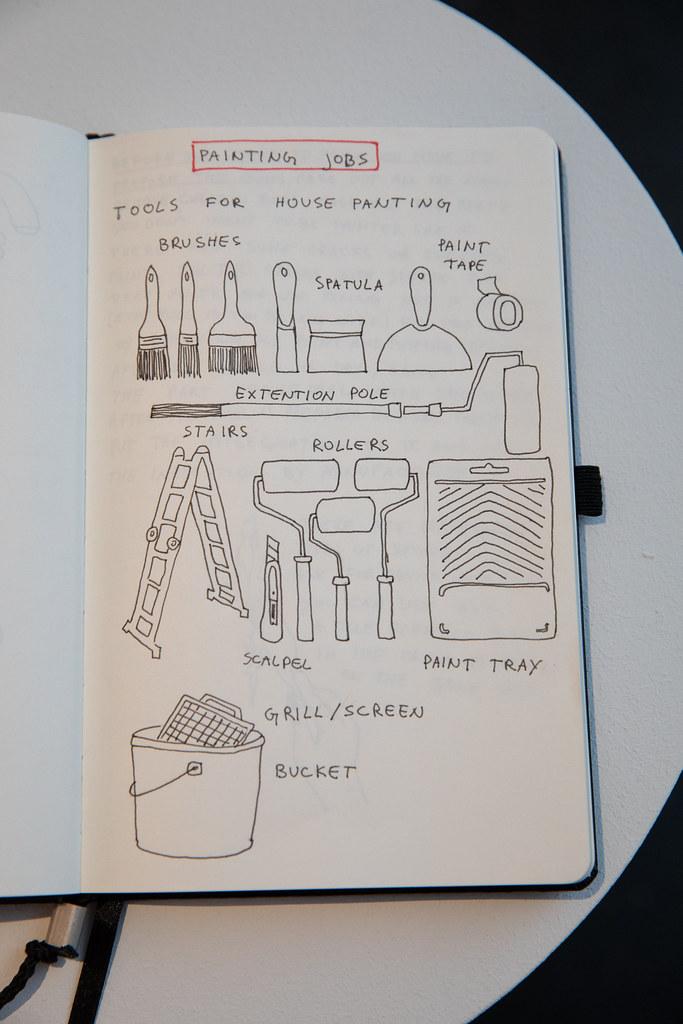 PAINTING JOBS
TOOLS FOR HOUSE PANTING
BRUSHES
PAINT
TAPE
SPATULA
EXTENTION POLE
STAIRS
ROLLERS
SCALPEL
PAINT TRAY
GRILL/SCREEN
BUCKET